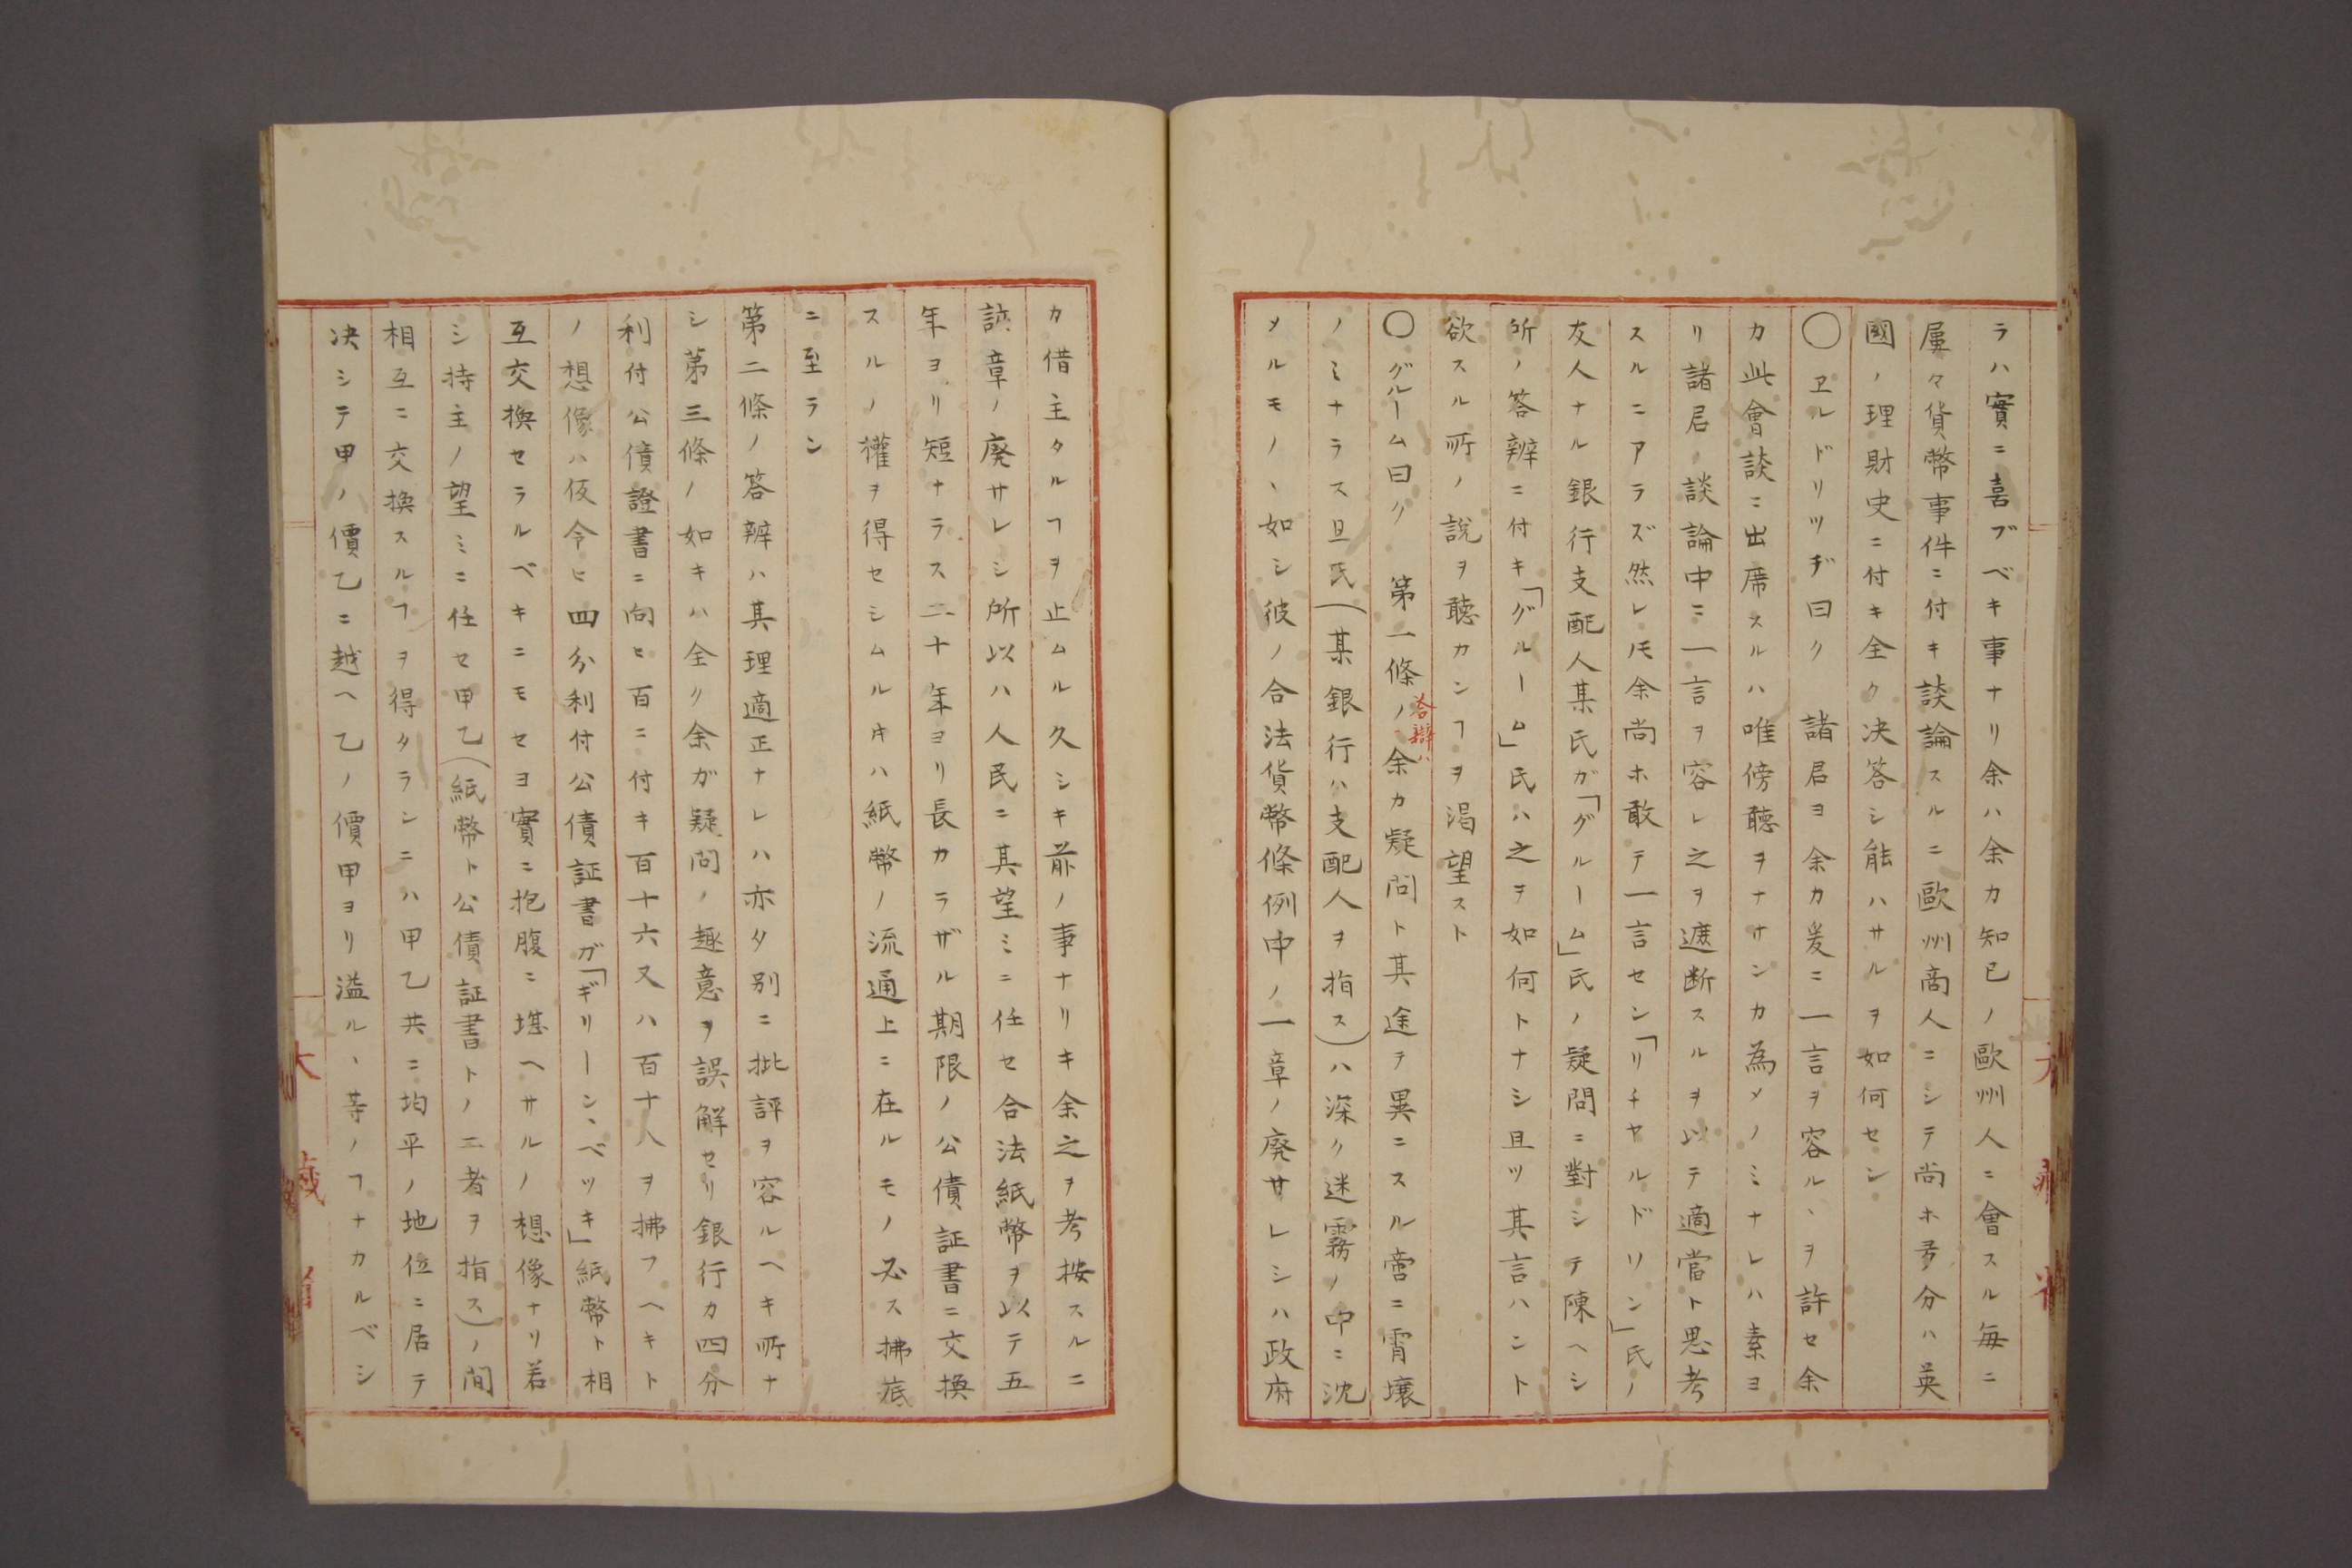 ラハ實ニ喜ブベキ事ナリ余ハ余カ知已ノ歐州人ニ會スル毎ニ
屢々貨幣事件ニ付キ談論スルニ歐州商人ニシテ尚ホ多分ハ英
國ノ理財史ニ付キ全ク决答シ能ハサルヲ如何セン
〇ヱルドリツヂ曰ク 諸君ヨ余カ爰ニ一言ヲ容ルヽヲ許セ余
カ此會談ニ出席スルハ唯傍聽ヲナサンカ為メノミナレハ素ヨ
リ諸君ノ談論中ニ一言ヲ容レ之ヲ遮断スルヲ以テ適當ト思考
スルニアラズ然レ𪜈余尚ホ敢テ一言セン「リチヤルドソン」氏ノ
友人ナル銀行支配人某氏ガ「グルーム」氏ノ疑問ニ對シテ陳ヘシ
所ノ答辨ニ付キ「グルーム」氏ハ之ヲ如何トナシ且ツ其言ハント
欲スル所ノ說ヲ聽カンヿヲ渇望スト
〇グルーム曰ク 第一條ノ答辯ハ余カ疑問ト其途ヲ異ニスル啻ニ霄壤
ノミナラス旦氏(某銀行ハ支配人ヲ指ス)ハ深ク迷霧ノ中ニ沈
メルモノヽ如シ彼ノ合法貨幣條例中ノ一章ノ廃サレシハ政府
カ借主タルヿヲ止ムル久シキ前ノ事ナリキ余之ヲ考按スルニ
該章ノ廃サレシ所以ハ人民ニ其望ミニ任セ合法紙幣ヲ以テ五
年ヨリ短ナラス二十年ヨリ長カラザル期限ノ公債証書ニ交換
スルノ權ヲ得セシムルキハ紙幣ノ流通上ニ在ルモノ必ス拂底
ニ至ラン
第二條ノ答辨ハ其理適正ナレハ亦タ別ニ批評ヲ容ルヘキ所ナ
シ第三條ノ如キハ全ク余ガ疑問ノ趣意ヲ誤解セリ銀行カ四分
利付公債證書ニ向ヒ百ニ付キ百十六又ハ百十八ヲ拂フヘキト
ノ想像ハ仮令ヒ四分利付公債証書ガ「ギリーン、ベツキ」紙幣ト相
互交換セラルベキニモセヨ實ニ抱腹ニ堪ヘサルノ想像ナリ若
シ持主ノ望ミニ任セ甲乙(紙幣ト公債証書トノ二者ヲ指ス)ノ間
相互ニ交換スルヿヲ得タランニハ甲乙共ニ均平ノ地位ニ居テ
决シテ甲ノ價乙ニ越ヘ乙ノ價甲ヨリ溢ルヽ等ノヿナカルベシ
大藏省